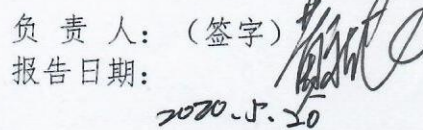 负 责 人：（签字）
报告日期：
2020.5.20